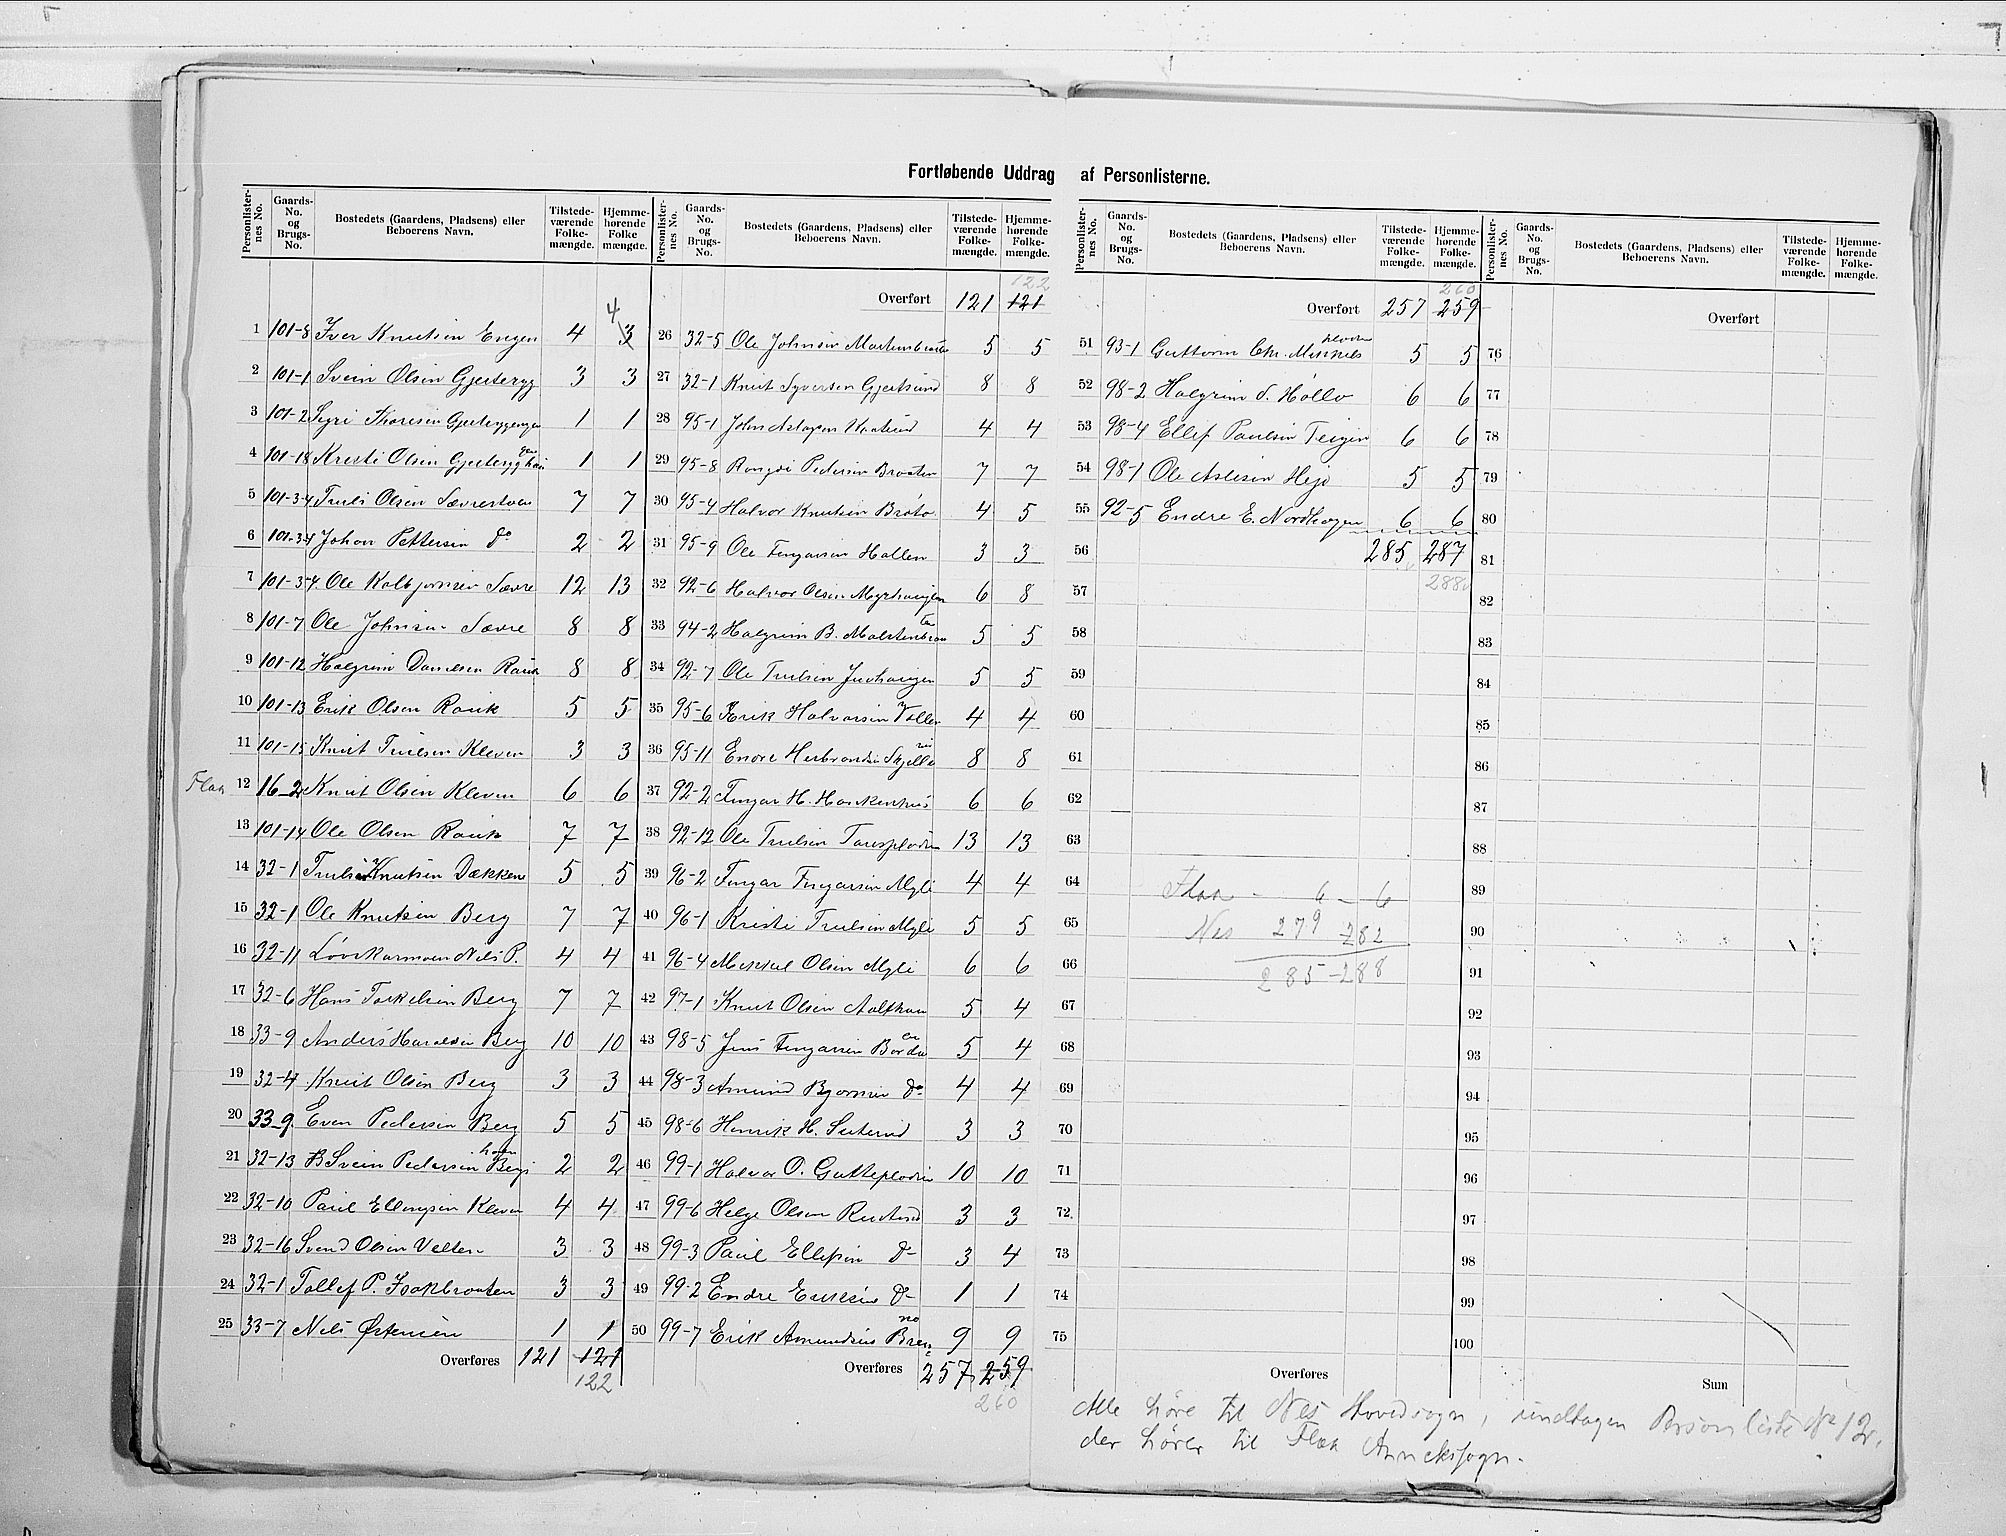 Fortløbende Uddrag af Personlisterne.
Personlister-nes No. Gaards-No. og Brugs-No. Bostedets (Gaardens, Pladsens) eller Beboerens Navn. Tilstede-værende Folke-mængde. Hjemme-hørende Folke mængde.
1 101-8 Iver Knutsen Engen 4 3 4
2 101-1 Svein Olsen Gjesteryg 3 3
3 101-2 Sigri Thoresen 1 1
4 101-18 Kristi Olsen 1 1
5 101-3-4 Truls Olsen 7 7
6 101-3-4 Johan Pettersen Do 2 2
7 101-3-4 Ole Kolbjørnsen Sævre 12 13
8 101-7 Ole Johnsen Sævre 8 8
9 101-12 Halgrim Danielsen Rauk 8 8
10 101-13 Erik Olsen Rouk 5 5
11 101-15 Knut Trulsen Kleven 3 3
Flaa 12 16-2 Knut Olsen Kleven 6 6
13 101-14 Ole Olsen Rouk 7 7
14 32-1 Truls Knutsen Dækken 5 5
15 32-1 Ole Knutsen Berg 7 7
16 32-11 Nils P. 4 4
17 32-6 Hans Torkelsen Berg 7 7
18 33-9 Anders Haraldsen Berg 10 10
19 32-4 Knut Olsen Berg 3 3
20 33-9 Even Pedersen Berg 5 5
21 32-13 Svein Pedersen 2 2
22 32-10 Paul Ellingsen Kleven 4 4
23 32-16 Svend Olsen 3 3
24 32-1 Tollef P. Isakbraaten 3 3
25 33-7 Nils Østensen 1 1
Overføres 121 121
122
Personlister-nes No. Gaards-No. og Brugs-No. Bostedets (Gaardens, Pladsens) eller Beboerens Navn. Tilstede-værende Folke-mængde. Hjemme-hørende Folke-mængde.
122
Overført 121 121
26 32-5 Ole Johnsen 5 5
27 32-1 Knut Syversen Gjertsund 8 8
28 95-1 John 4 4
29 95-8 Pedersen Braaten 7 7
30 95-4 Halvor Knutsen 4 5
31 95-9 Ole Fingarsen Hallen 3 3
32 92-6 Halvor Olsen Myrhaugen 6 8
33 94-2 Halgrim B. 5 5
34 92-7 Ole Trulsen Juvhaugen 5 5
35 95-6 Erik Halvorsen 4 4
36 95-11 Endre Herbrandsen 8 8
37 92-2 Fingar H. Haukenhus 6 6
38 92-12 Ole Trulsen 13 13
39 96-2 Fingar Fingarsen Myli 4 4
40 96-1 Kristi Trulsen Myli 5 5
41 96-4 Olsen Myli 6 6
42 97-1 Knut Olsen 5 4
43 98-5 Jens Fingarsen 5 4
44 98-3 Amund Bjørnsen Do 4 4
45 98-6 Henrik H. 3 3
46 99-1 Halvor O. 10 10
47 99-6 Helge Olsen Rustand 3 3
48 99-3 Paul Ellefsen Do 3 4
49 99-2 Endre Eriksen Do 1 1
50 99-7 Erik Amundsen 9 9
Overføres 257 259
260
Personlister-nes No. Gaards-No. og Brugs-No. Bostedets (Gaardens, Pladsens) eller Beboerens Navn. Tilstede-værende Folke-mængde. Hjemme-hørende Folke-mængde.
260
Overført 257 259
51 93-1 Guttorm Chr. 5 5
52 98-2 Halgrim S. 6 6
53 98-4 Ellef Paulsen Teigen 6 6
54 98-1 Ole Aslesen 5 5
55 92-5 Endre E. Nordhagen 6 6
56 285 287
288
57
58
59
60
61
62
63
64 Flaa - 6 - 6
65 Nes 279 - 282
66 285 - 288
67
68
69
70
71
72
73
74
75
Overføres
Personlister-nes No. Gaards-No. og Brugs-No. Bostedets (Gaardens, Pladsens) eller Beboerens Navn. Tilstede-værende Folke-mængde. Hjemme-hørende Folke-mængde.
Overført
76
77
78
79
80
81
82
83
84
85
86
87
88
89
90
91
92
93
94
95
96
97
98
99
100
Sum
Alle høre til Nes Hovedsogn, undtagen Personliste No 12,
der hører til Flaa Annekssogn.